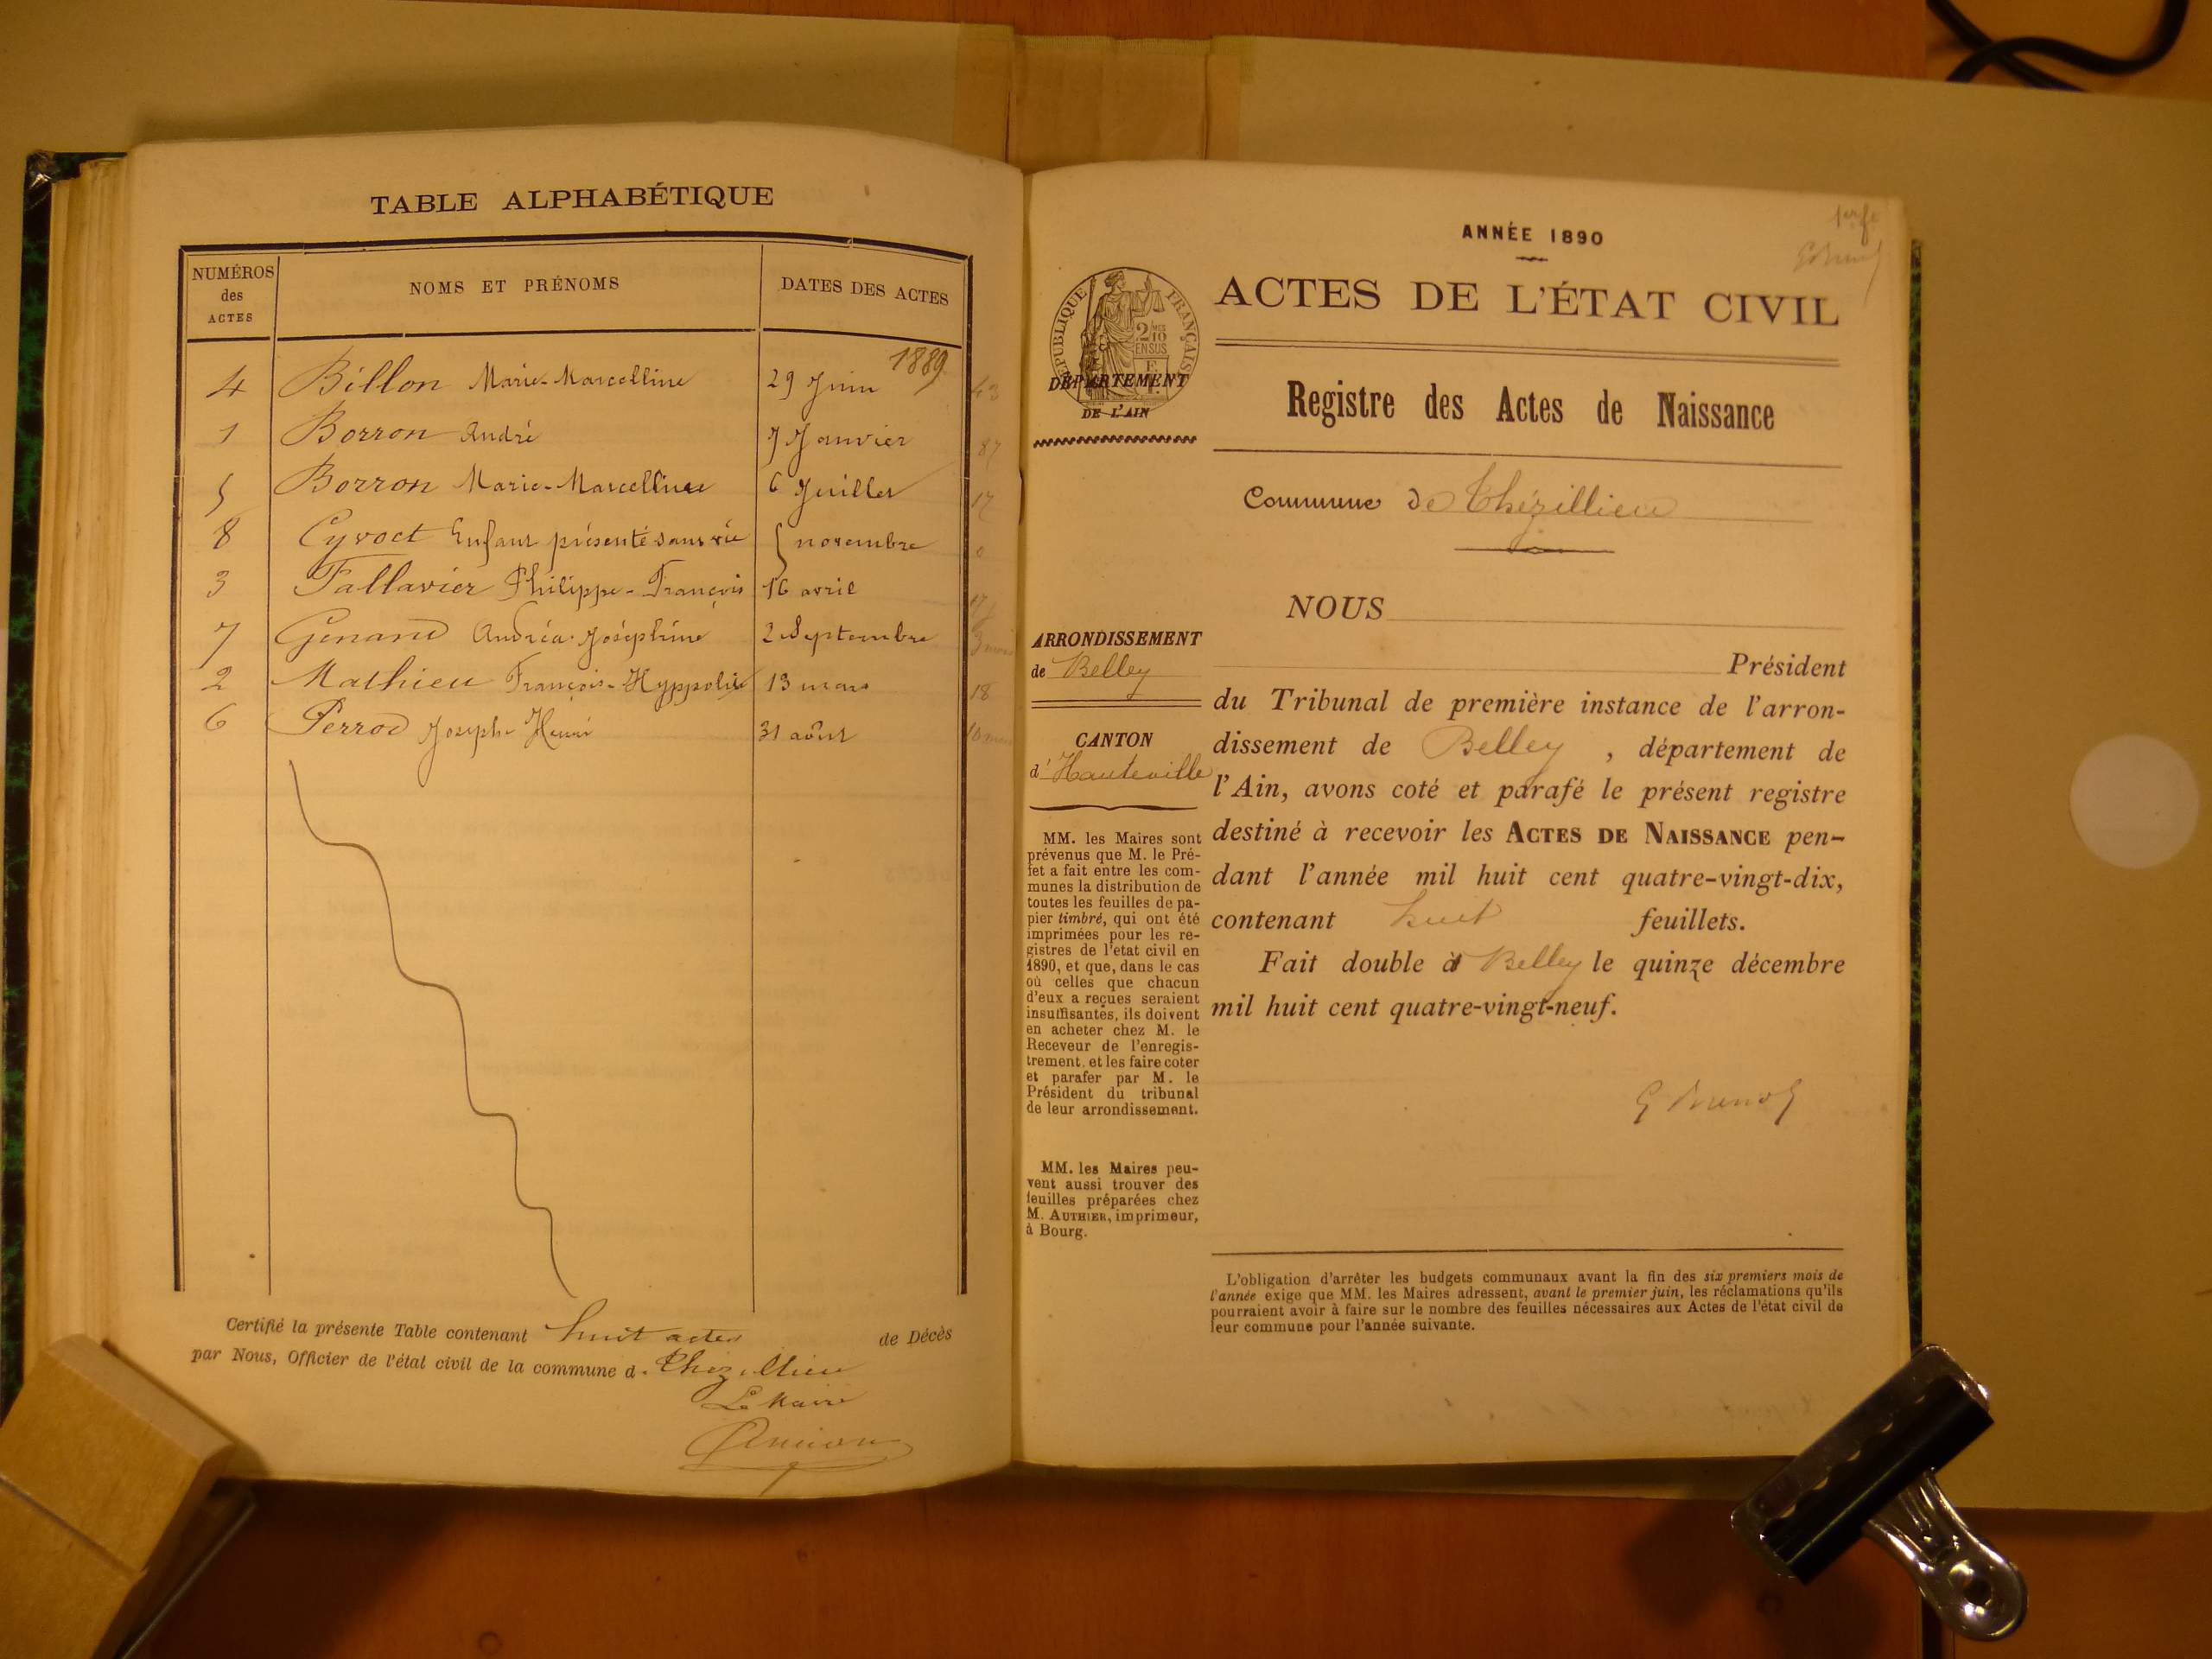 TABLE ALPHABÉTIQUE
NUMÉROS des ACTES
NOMS ET PRÉNOMS
DATES DES ACTES
1889
4 Billon Marie-Marcelline 29 Juin
1 Borron André 7 Janvier
5 Borron Marie-Marcelline 6 Juillet
8 Cyvoct Enfant présenté sans vie 5 novembre
3 Fallavier Philippe-François 16 avril
7 Genand Andréa-Joséphine 2 Septembre
2 Mathieu François-Hyppolite 13 mars
6 Perrod Joseph-Henri 31 août
Certifié la présente Table contenant huit actes de Décès
par Nous, Officier de l'état civil de la commune d. Thézillieu
Le Maire
ANNÉE 1890
ACTES DE L'ÉTAT CIVIL
RÉPUBLIQUE FRANÇAISE
2/10 EN SUS
DÉPARTEMENT
DE L'AIN
Registre des Actes de Naissance
Commune de Thézillieu
ARRONDISSEMENT
de Belley
CANTON
d'Hauteville
MM. les Maires sont
prévenus que M. le Pré-
fet a fait entre les com-
munes la distribution de
toutes les feuilles de pa-
pier timbré, qui ont été
imprimées pour les re-
gistres de l'etat civil en
1890, et que, dans le cas
où celles que chacun
d'eux a reçues seraient
insuffisantes, ils doivent
en acheter chez M. le
Receveur de l'enregis-
trement. et les faire coter
et parafer par M. le
Président du tribunal
de leur arrondissement.
MM. les Maires peu-
vent aussi trouver des
feuilles préparées chez
M. AUTHIER, imprimeur,
à Bourg.
NOUS
Président
du Tribunal de première instance de l'arron-
dissement de Belley, département de
l'Ain, avons coté et parafé le présent registre
destiné à recevoir les ACTES DE NAISSANCE pen-
dant l'année mil huit cent quatre-vingt-dix,
contenant huit feuillets.
Fait double à Belley le quinze décembre
mil huit cent quatre-vingt-neuf.
L'obligation d'arrêter les budgets communaux avant la fin des six premiers mois de
l'année exige que MM. les Maires adressent, avant le premier juin, les réclamations qu'ils
pourraient avoir à faire sur le nombre des feuilles nécessaires aux Actes de l'état civil de
leur commune pour l'année suivante.